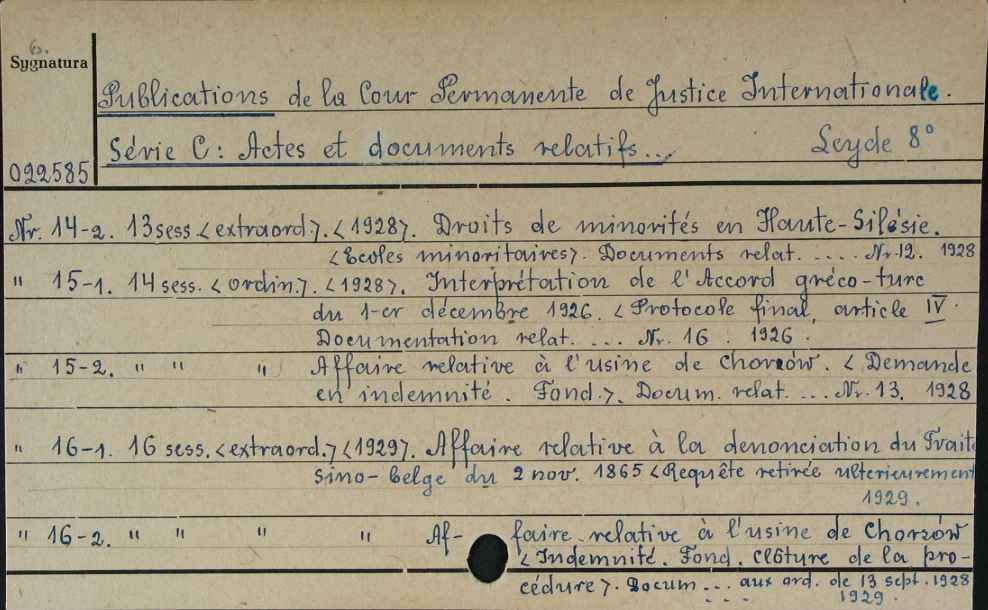 6.
Sygnatura
Publications de la Cour Permanente de Justice Internationale.
Série C: Actes et documents relatifs... Leyde 8°
022585
Nr. 14-2. 13 sess <extraord.>. <1928>. Droits de minorités en Haute-Silésie.
<Ecoles minoritaires>. Documents relat. .... Nr. 12. 1928
" 15-1. 14 sess. <ordin.>. <1928>. Interprétation de l'Accord gréco-turc
du 1-er décembre 1926. <Protocole final, article IV.
Documentation relat. ... Nr. 16. 1926.
" 15-2. " " " Affaire relative à l'usine de Chorzów. <Demande
en indemnité. Fond.>. Docum. relat. ... Nr. 13. 1928
" 16-1. 16 sess. <extraord.> <1929>. Affaire relative à la denonciation du Traité
sino-belge du 2 nov. 1865 <Requête retirée ulterieurement
1929.
" 16-2. " " " " Af- faire relative à l'usine de Chorzów
<Indemnité. Fond. clôture de la pro-
cédure>. Docum... aux ord. de 13 sept. 1928
... 1929.